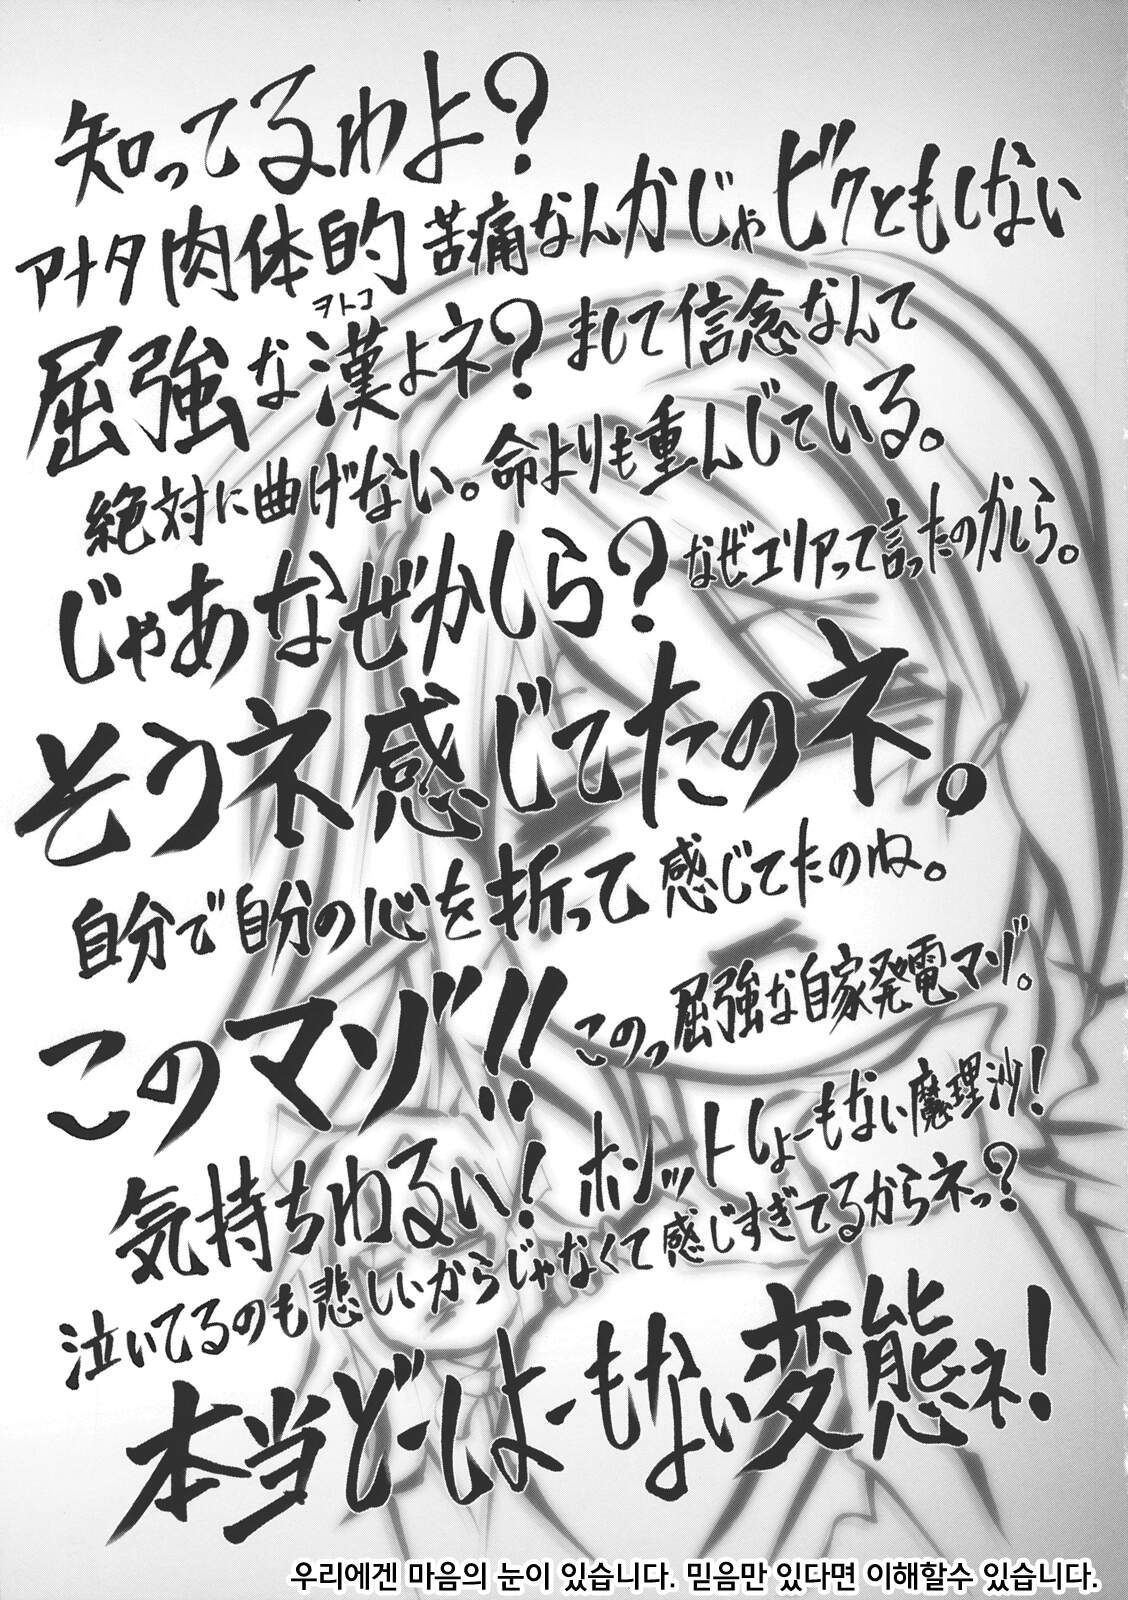 知ってるわよ?
アナタ肉体的苦痛なんかじゃビクともしない
屈強な漢よネ?まして信念なんて
ヲトコ
絶対に曲げない。命よりも重んじている。
じゃあなぜかしら?なぜエリアって言ったのかしら。
そうネ感じてたのネ。
自分で自分の心を折って感じてたのね。
このマゾ!!このっ屈強な自家発電マゾ。
気持ちわるい!ホンットしょーもない魔理沙!
泣いてるのも悲しいからじゃなくて感じすぎてるからネっ?
本当どーしよーもない変態ネ!
우리에겐 마음의 눈이 있습니다. 믿음만 있다면 이해할수 있습니다.